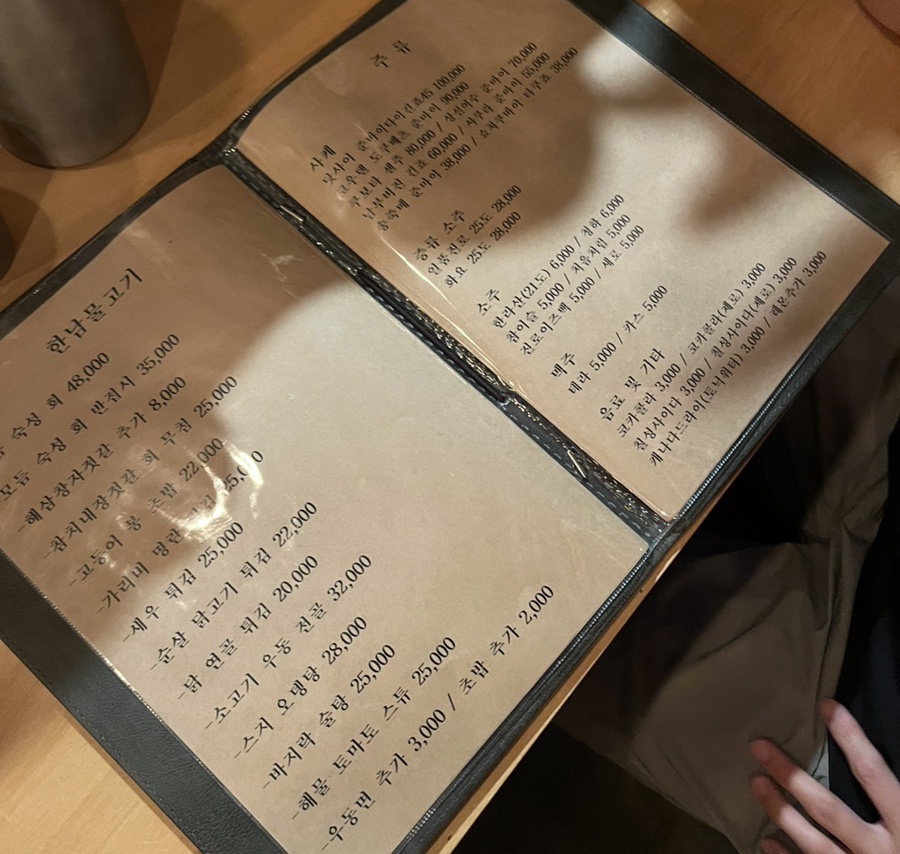 한남물고기
숙성 회 48,000
모듬 숙성 회 반접시 35,000
-해삼창자젓갈 추가 8,000
-참치내장젓갈 회 무침 25,000
-고등어 봉 초밥 22,000
-가리비 명란
-새우 튀김 25,000
-순살 닭고기 튀김 22,000
-닭 연골 튀김 20,000
-소고기 우동 전골 32,000
-스지 오뎅탕 28,000
-바지락 술탕 25,000
-해물 토마토 스튜 25,000
-우동면 추가 3,000 / 초밥 추가 2,000
주 류
사케
닷사이 준마이다이긴죠45 100,000
준마이 90,000
쿠보타 센주 80,000 / 준마이 70,000
남부비진 긴죠 60,000 / 준마이 55,000
송죽매 준마이 38,000 / 38,000
증류 소주
일품진로 25도 28,000
화요 25도 28,000
소주
한라산(21도) 6,000 / 청하 6,000
참이슬 5,000 / 처음처럼 5,000
진로이즈백 5,000 / 새로 5,000
맥주
테라 5,000 / 카스 5,000
음료 및 기타
코카콜라 3,000 / 코카콜라(제로) 3,000
칠성사이다 3,000 / 칠성사이다(제로) 3,000
캐나다드라이(토닉워터) 3,000 / 레몬추가 3,000